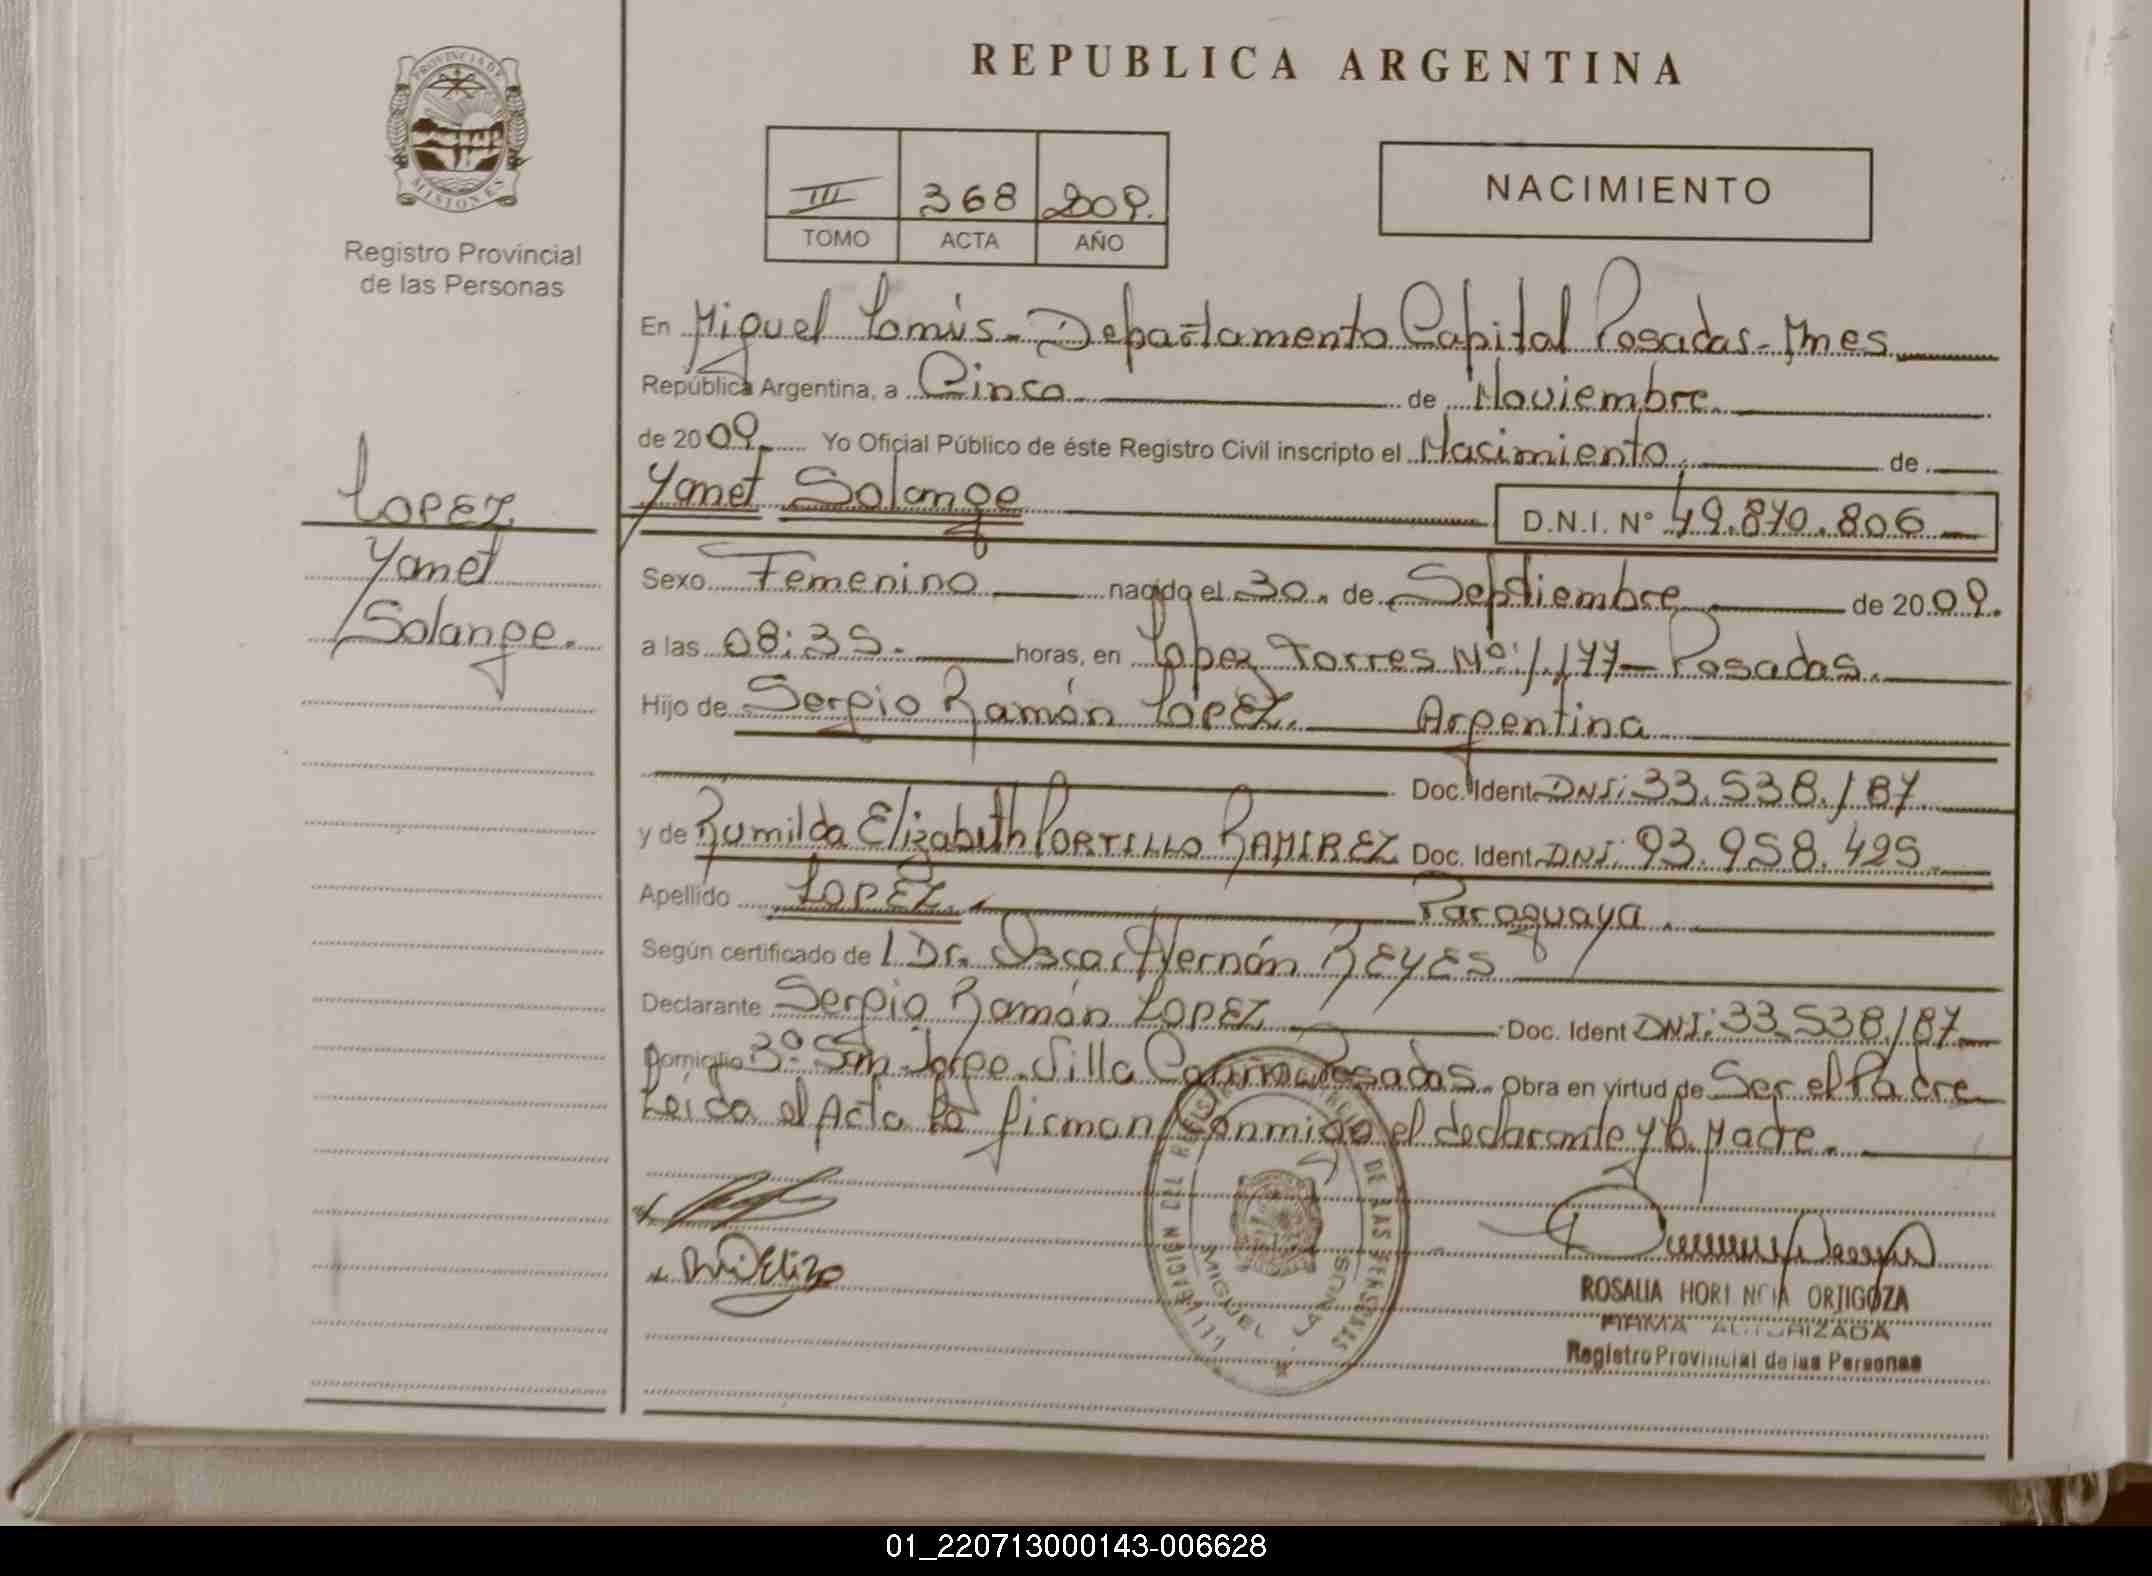 REPUBLICA ARGENTINA
PROVINCIA DE MISIONES
Registro Provincial
de las Personas
III 368 2009.
TOMO ACTA AÑO
NACIMIENTO
En Miguel Lanús - Departamento Capital Posadas - Mnes
República Argentina, a Cinco de Noviembre
de 2009. Yo Oficial Público de éste Registro Civil inscripto el Nacimiento de
Yanet Solange D.N.I. Nº 49.870.806
LOPEZ
Yanet
Solange.
Sexo Femenino nacido el 30. de Septiembre de 2009.
a las 08:35. horas, en Lopez Torres Nº: 1.177 - Posadas.
Hijo de Sergio Ramón LOPEZ. Argentina
Doc. Ident. DNI: 33.538.187
y de Rumilda Elizabeth PORTILLO RAMIREZ Doc. Ident. DNI: 93.958.425
Apellido LOPEZ. Paraguaya.
Según certificado de l Dr. Oscar Hernán REYES
Declarante Sergio Ramón LOPEZ Doc. Ident DNI: 33.538.187
Domicilio Bº San Jorge. Villa Posadas. Obra en virtud de Ser el Padre
Leída el Acta la firman conmigo el declarante y la Madre.
DELEGACION DEL REGISTRO PROVINCIAL DE LAS PERSONAS
MIGUEL LANUS
ROSALIA HORTENCIA ORTIGOZA
FIRMA AUTORIZADA
Registro Provincial de las Personas
01_220713000143-006628